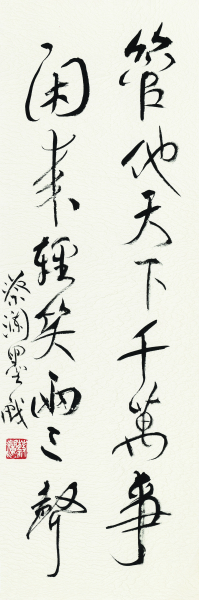 管他天下千萬事
閑來輕笑兩三聲
蔡瀾墨戲